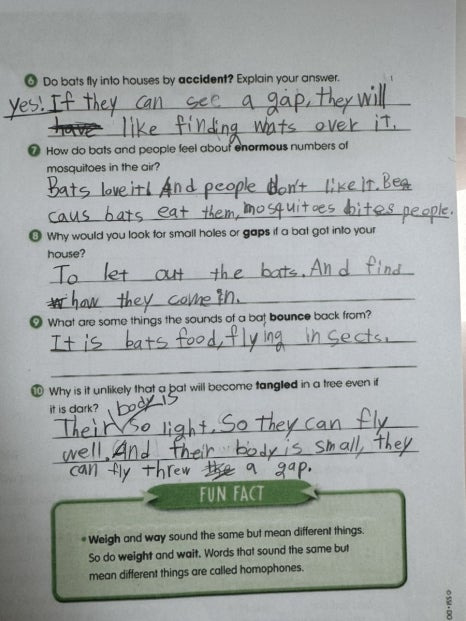 6 Do bats fly into houses by accident? Explain your answer.
yes! If they can see a gap, they will
like finding wats over it.
7 How do bats and people feel about enormous numbers of
mosquitoes in the air?
Bats love it! And people don't like it. Bea
caus bats eat them, mosquitoes bites people.
8 Why would you look for small holes or gaps if a bat got into your
house?
To let out the bats. And find
how they come in.
9 What are some things the sounds of a bat bounce back from?
It is bats food, flying insects.
10 Why is it unlikely that a bat will become tangled in a tree even if
it is dark? body is
Their so light. So they can fly
well. And their body is small, they
can fly threw a gap.
FUN FACT
• Weigh and way sound the same but mean different things.
So do weight and wait. Words that sound the same but
mean different things are called homophones.